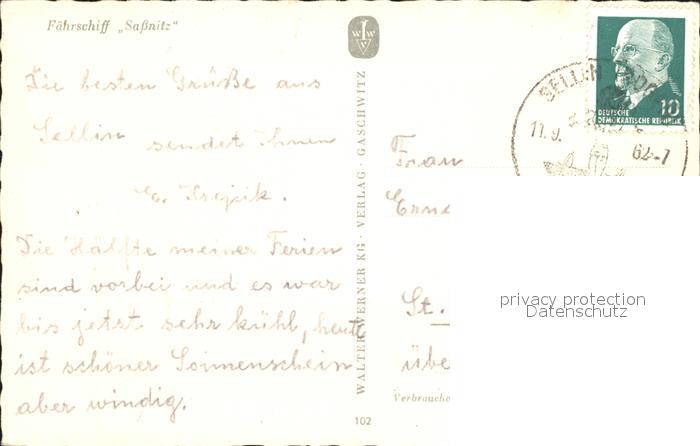 Fährschiff „Saßnitz"
Die besten Grüße aus
Sellin sendet Ihnen
E. Krejzik.
Die Hälfte meiner Ferien
sind vorbei und es war
bis jetzt sehr kühl, heute
ist schöner Sonnenschein
aber windig.
WALTER WERNER KG · VERLAG · GASCHWITZ
102
DEUTSCHE
DEMOKRATISCHE REPUBLIK
10
SELLIN
11.9. 62-7
Frau
St.
übe
Verbrauche
privacy protection
Datenschutz